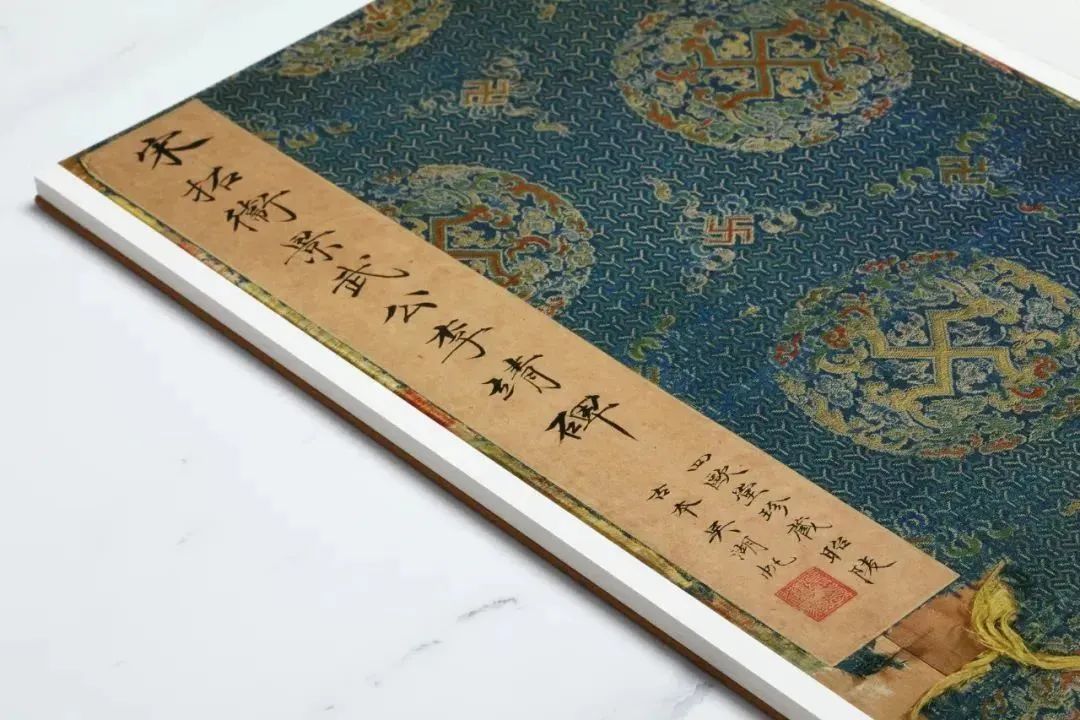 宋拓衞景武公李靖碑
四歐堂珍藏昭陵
古本吴湖帆